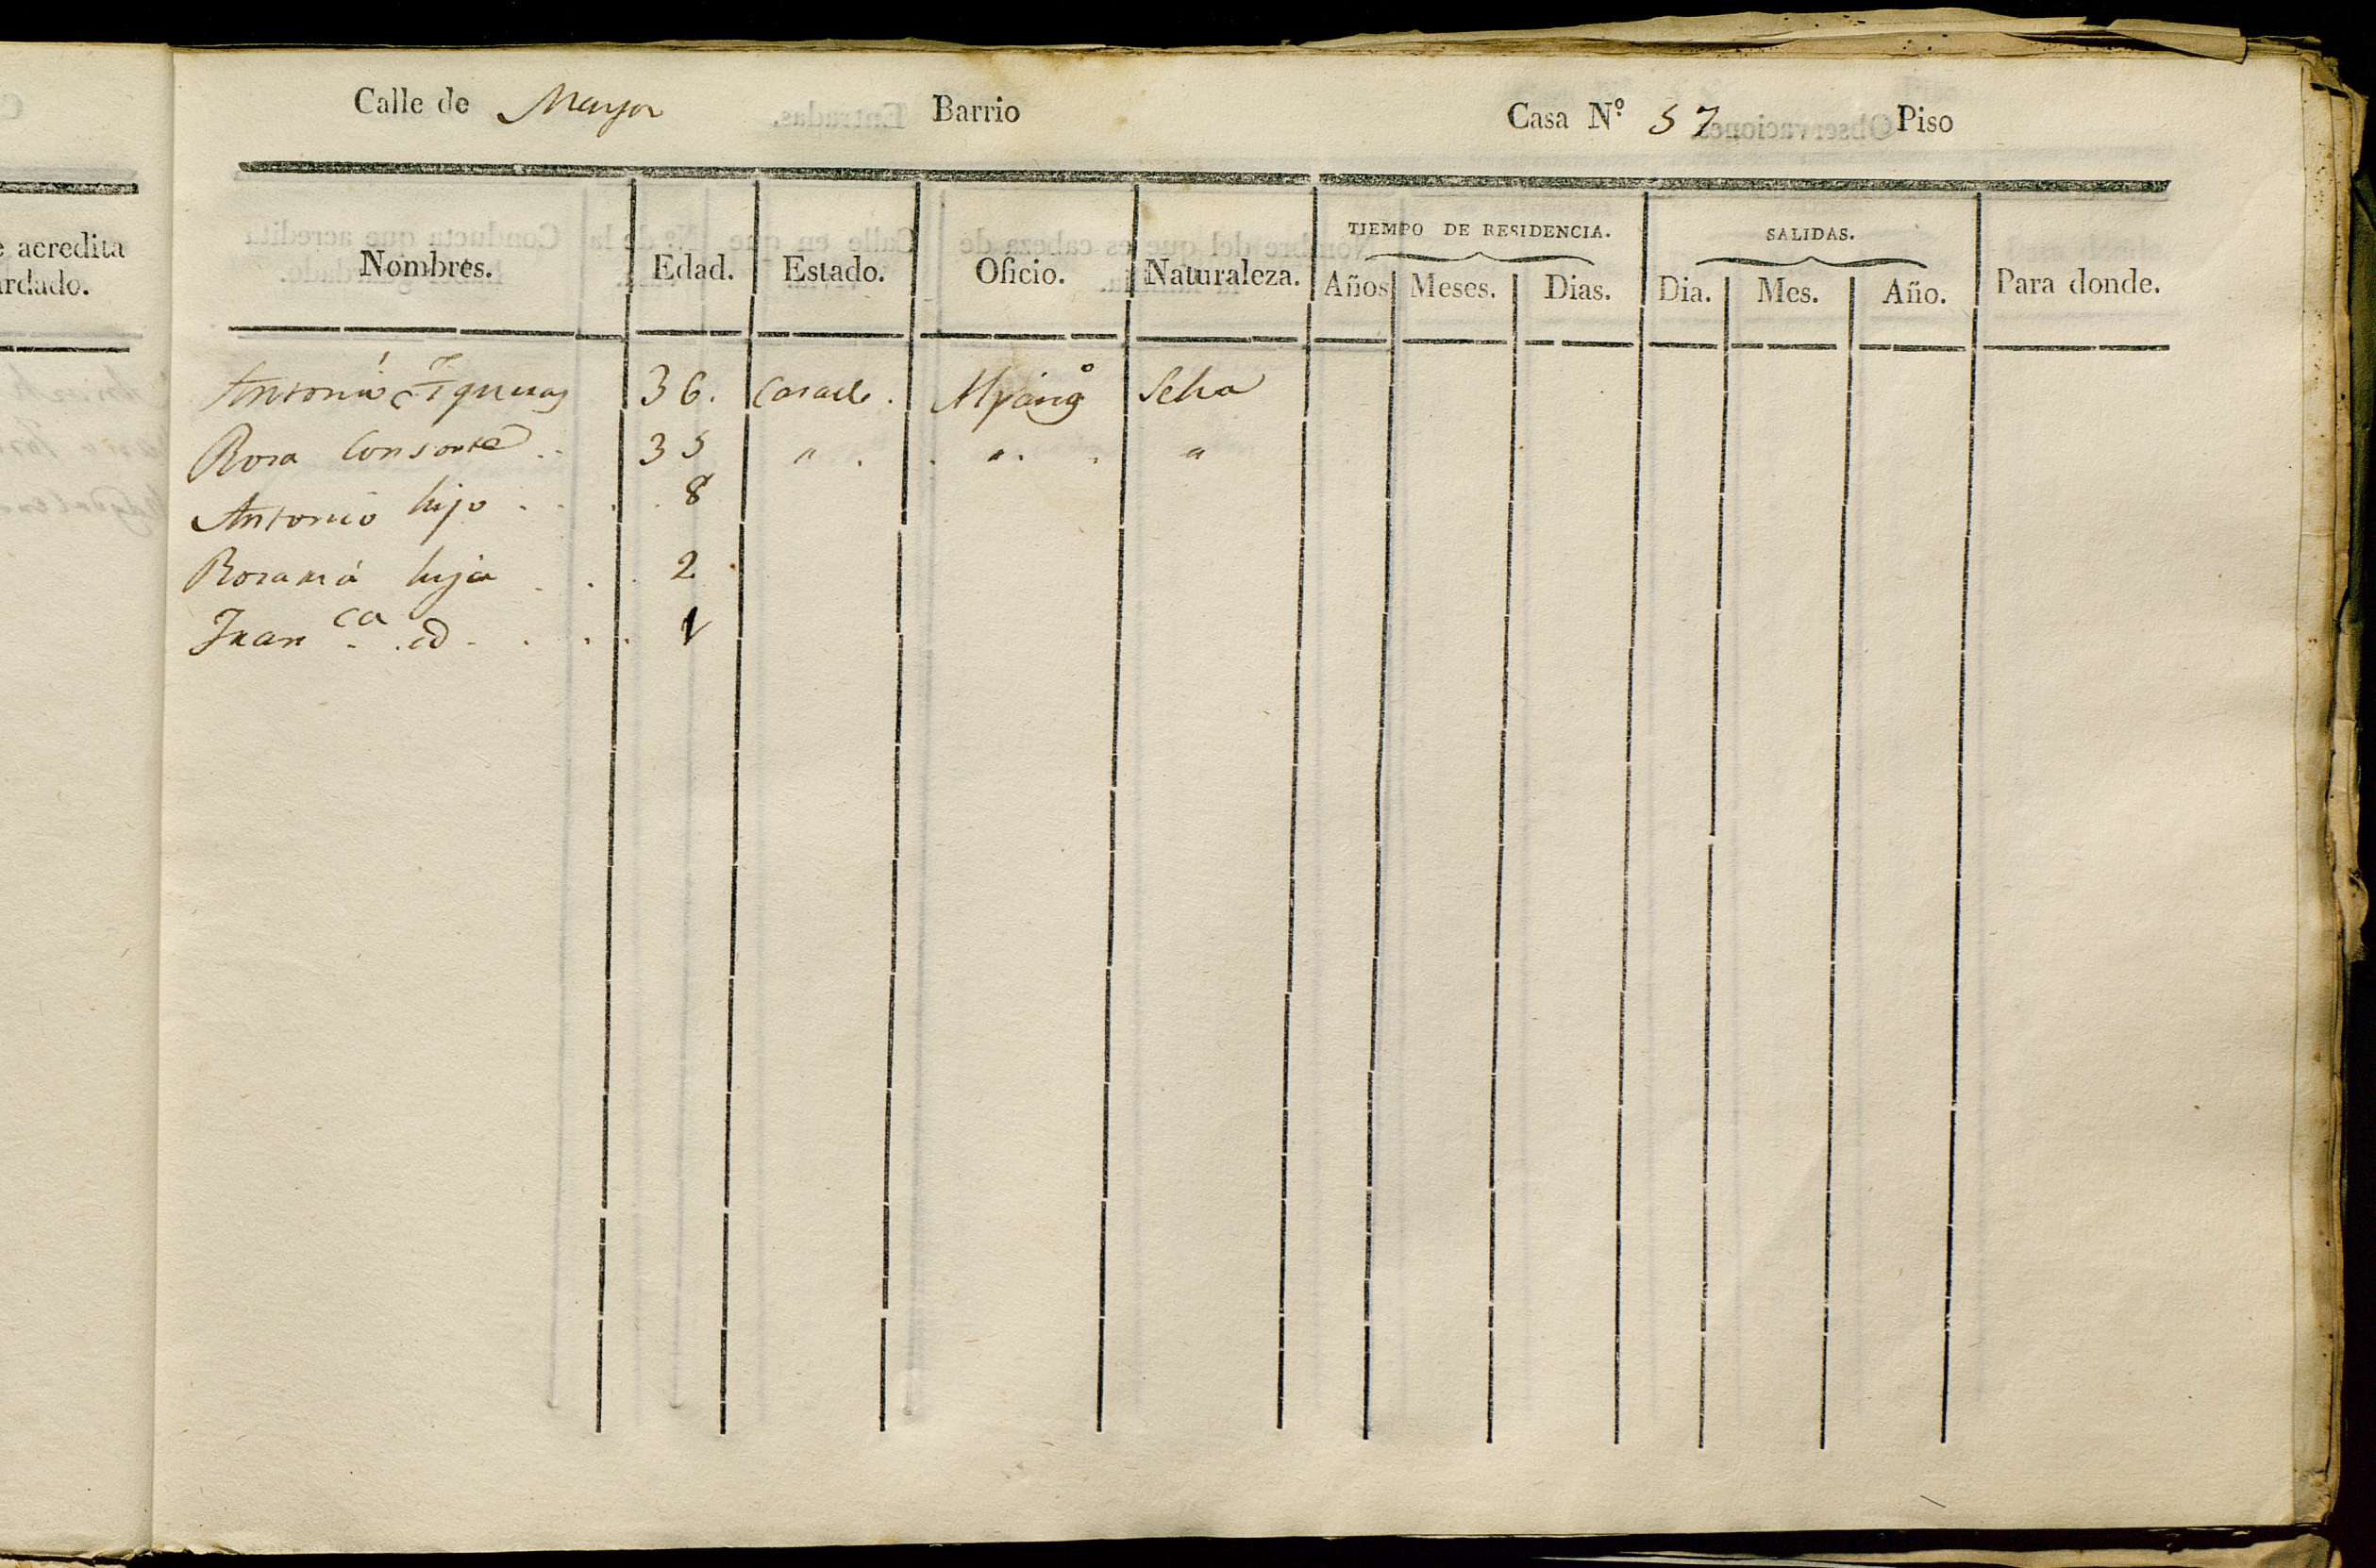 Calle de Mayor Barrio Casa N.º 57 Piso
e acredita
ardado.
TIEMPO DE RESIDENCIA. SALIDAS.
Nombres. Edad. Estado. Oficio. Naturaleza. Años Meses. Dias. Dia. Mes. Año. Para donde.
Antonio Figueras 36. Casado. Selva
Rosa Consorte .. 35 " . . ". . "
Antonio hijo . . . . 8
hija . . . 2.
Fran.ca id. . . . 1